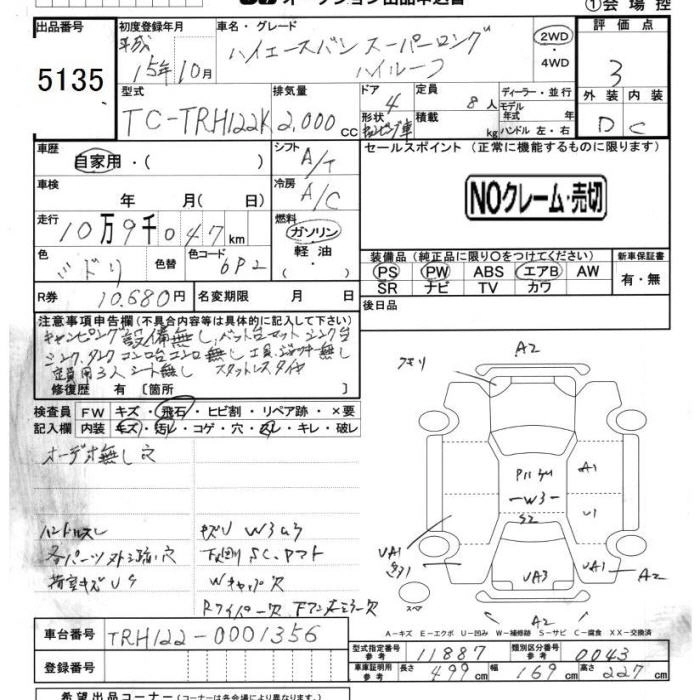 オークション出品申込書
①会場控
出品番号
5135
初度登録年月
平成
15年10月
車名・グレード
ハイエースバン スーパーロング
ハイルーフ
2WD
・
4WD
評価点
3
外装 内装
D C
型式
TC-TRH122K
排気量
2,000 CC
ドア
4
形状
キャンピング車
定員
8人
積載
kg
ディーラー・並行
モデル
年式 年
ハンドル 左・右
車歴
自家用・( )
シフト
A/T
車検
年 月(日)
冷房
A/C
走行
10万9千047km
燃料
ガソリン
軽油
・( )
色
ミドリ
色替
色コード
6P2
R券
10.680円
名変期限 月 日
セールスポイント(正常に機能するものに限ります)
NOクレーム・売切
装備品(純正品に限り○をつけてください)
PS PW ABS エアB AW
SR ナビ TV カワ
新車保証書
有・無
後日品
注意事項申告欄(不具合内容等は具体的に記入して下さい)
キャンピング設備無し、ベット台マット シンク台
シンク、タンク コンロ台コンロ無し 工具、ジャッキ無し
定員用3人シート無し スタットレスタイヤ
修復歴 有 [箇所 ]
検査員 FW キズ・飛石・ヒビ割・リペア跡・×要
記入欄 内装 キズ・汚レ・コゲ・穴・凹レ・キレ・破レ
オーデオ無し穴
ハンドルスレ
W3ムラ
下廻り SC、アマト
Wキャップ欠
Rワイパー欠 Fアンダーミラー欠
A2
P11ケ4
W3
S2
A1
U1
UA1
UA3
UA1
A2
A2
スペア
A-キズ E-エクボ U-凹み W-補修跡 S-サビ C-腐食 XX-交換済
車台番号
TRH122-0001356
登録番号
型式指定番号
参考
11887
類別区分番号
参考
0043
車庫証明用
参考
長さ
499cm
幅
169cm
高さ
227cm
希望出品コーナー(コーナーは各会場により異なります)